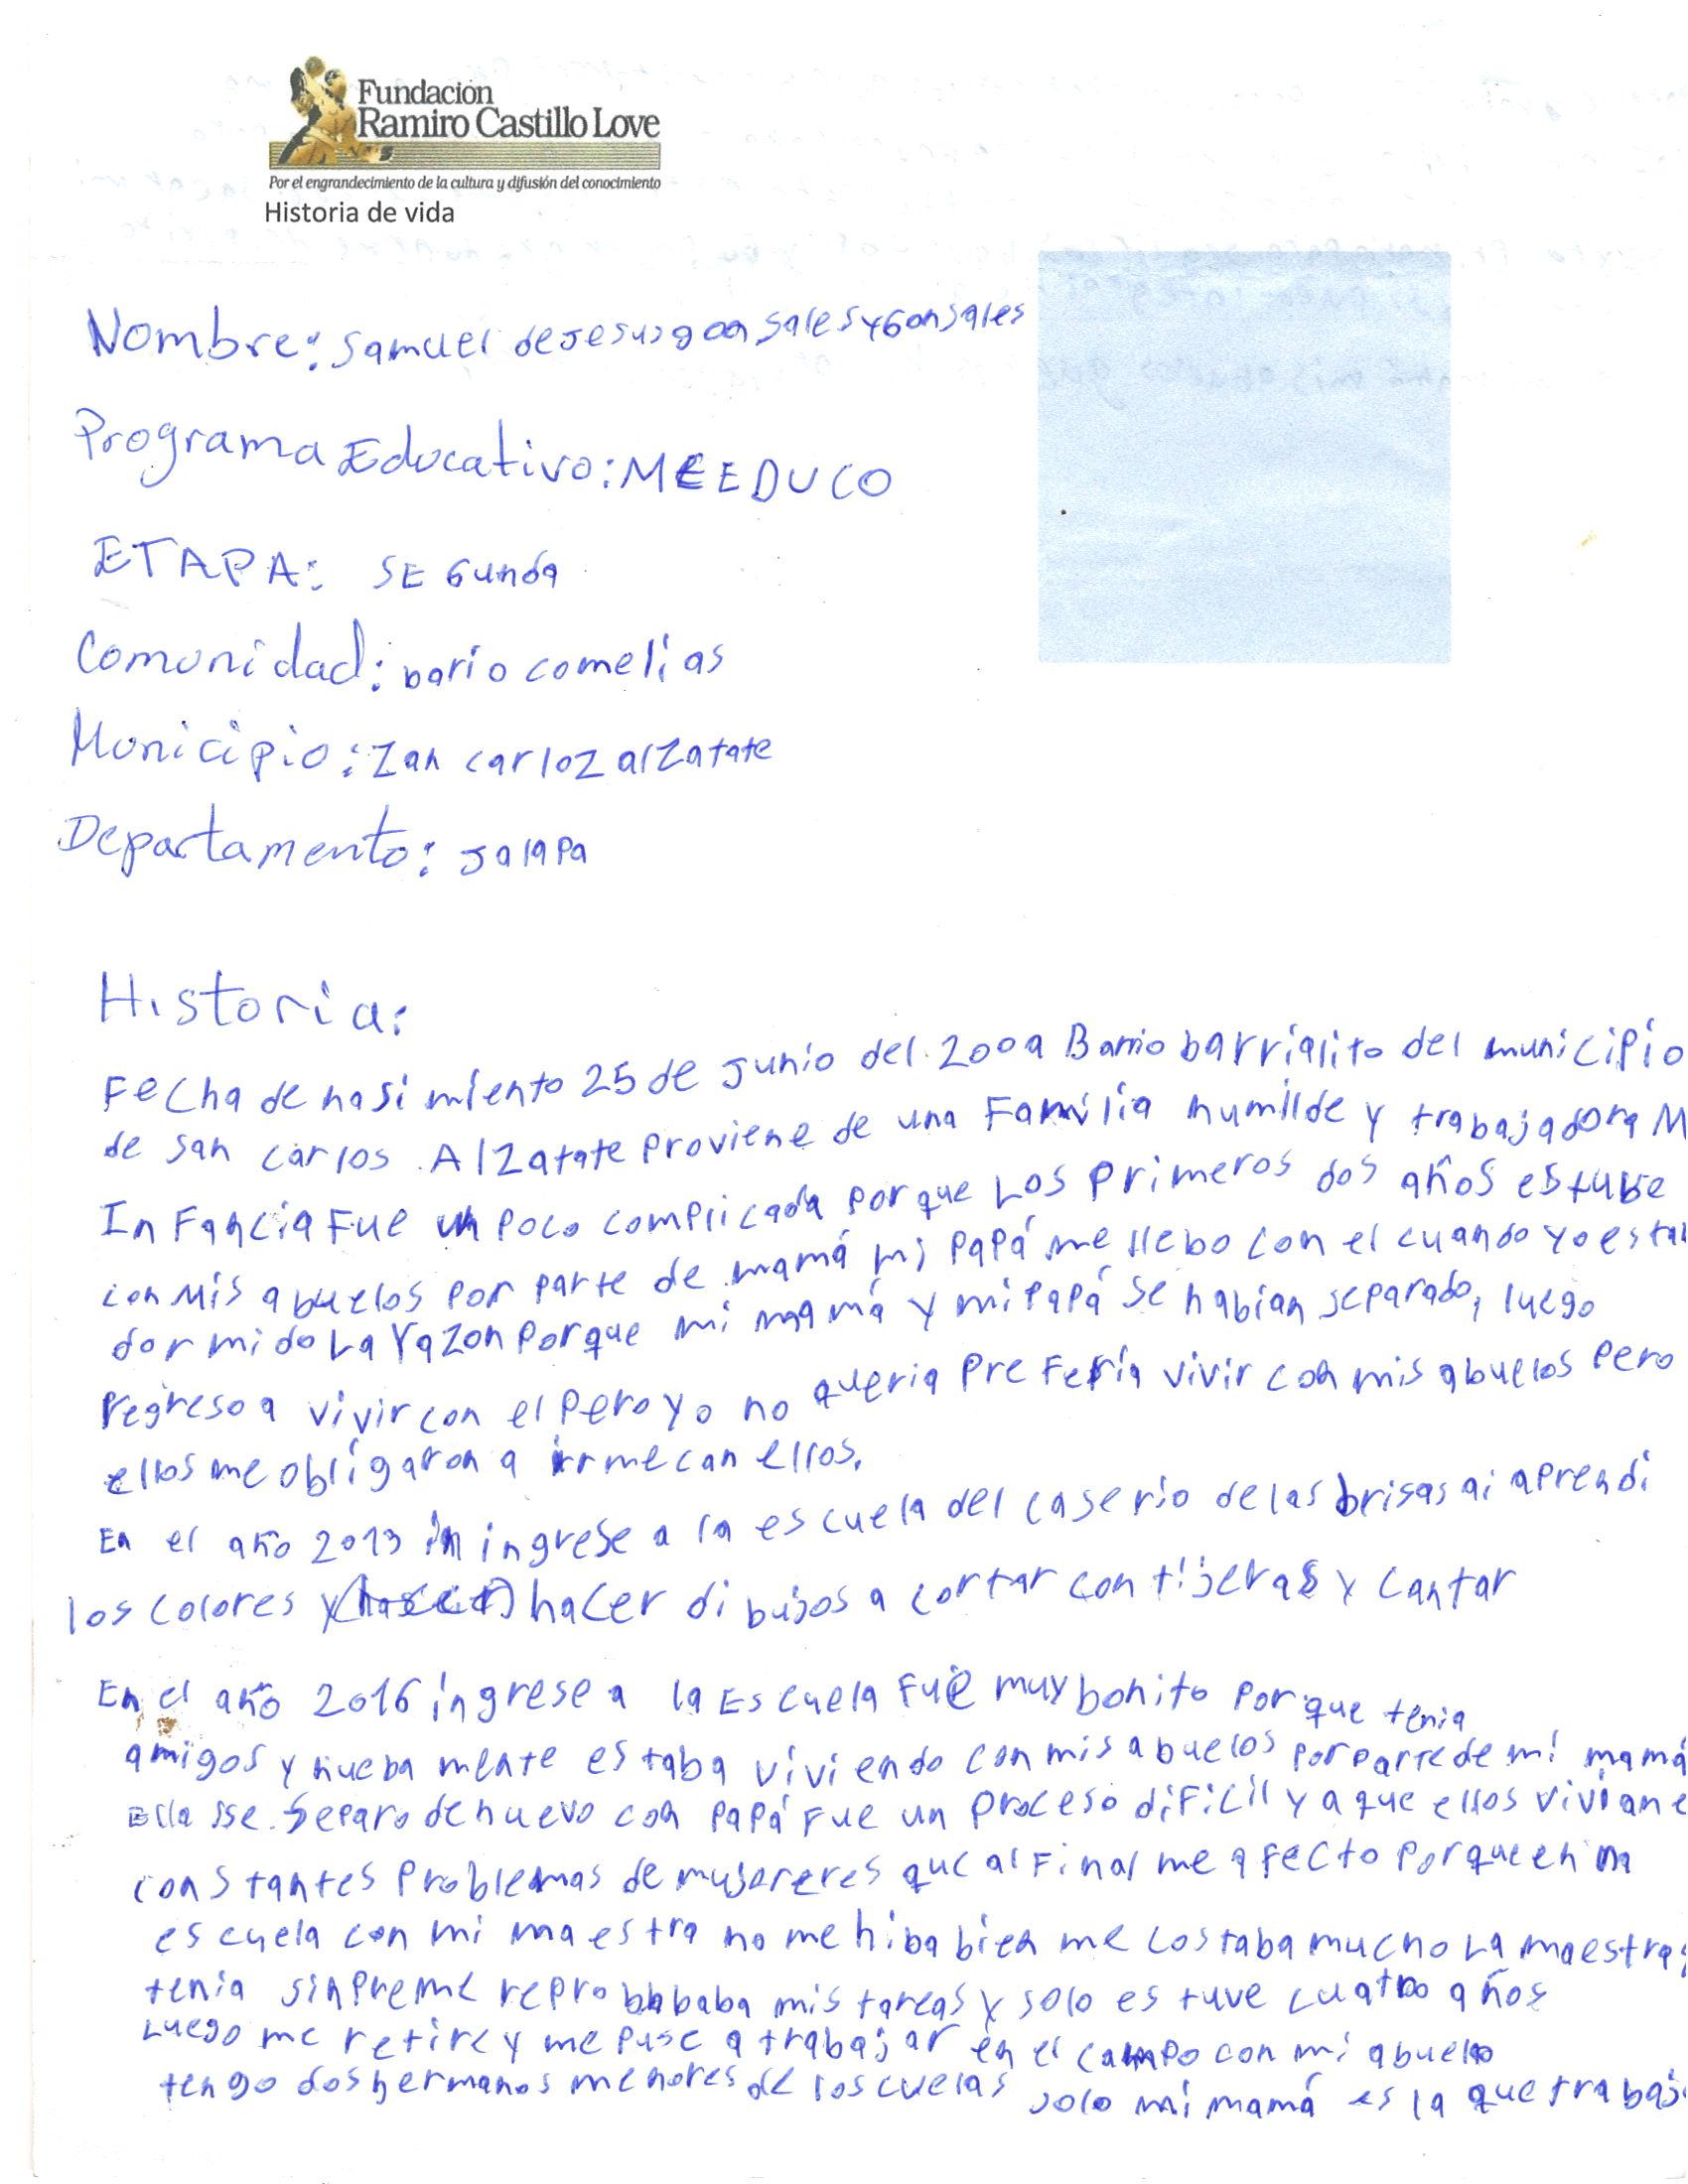 Fundación
Ramiro Castillo Love
Por el engrandecimiento de la cultura y difusión del conocimiento
Historia de vida
Nombre: Samuel de Jesus gon sales y Gonsales
Programa Educativo: MEEDUCO
ETAPA: SEGunda
Comunidad: bario comelias
Municipio: Zan carloz alzatate
Departamento: Jalapa
Historia:
Fecha de nasimiento 25 de Junio del 2009 Barrio barrialito del municipio
de San Carlos Alzatate proviene de una Familia humilde y trabajadora M
InFancia Fue un poco complicada porque Los primeros dos años estube
con Mis abuelos por parte de mamá mi papá me llebo con el cuando yo estab
dormido La razon porque mi mamá y mi papá se habian separado, luego
regreso a vivir con el pero yo no queria preferia vivir con mis abuelos pero
ellos me obligaron a irme can ellos.
En el año 2013 ingrese a la escuela del caserio de las brisas ai aprendi
los colores y (hacer) hacer dibujos a cortar con tijeras y cantar
En el año 2016 ingrese a la Escuela Fue muy bonito porque tenia
amigos y nueba mente estaba viviendo con mis abuelos por parte de mi mamá
Ella sse separo de nuevo con papá Fue un proceso diFicil ya que ellos vivian e
constantes problemas de mujereres que al Final me afecto porque en
escuela con mi maestra no me hiba bien me costaba mucho La maestra
tenia sinpreme reprobbbaba mis tareas y solo estuve cuatro años
Luego me retire y me puse a trabajar en el campo con mi abuelo
tengo dos hermanos menores de los cuelas solo mi mamá es la que trabaj